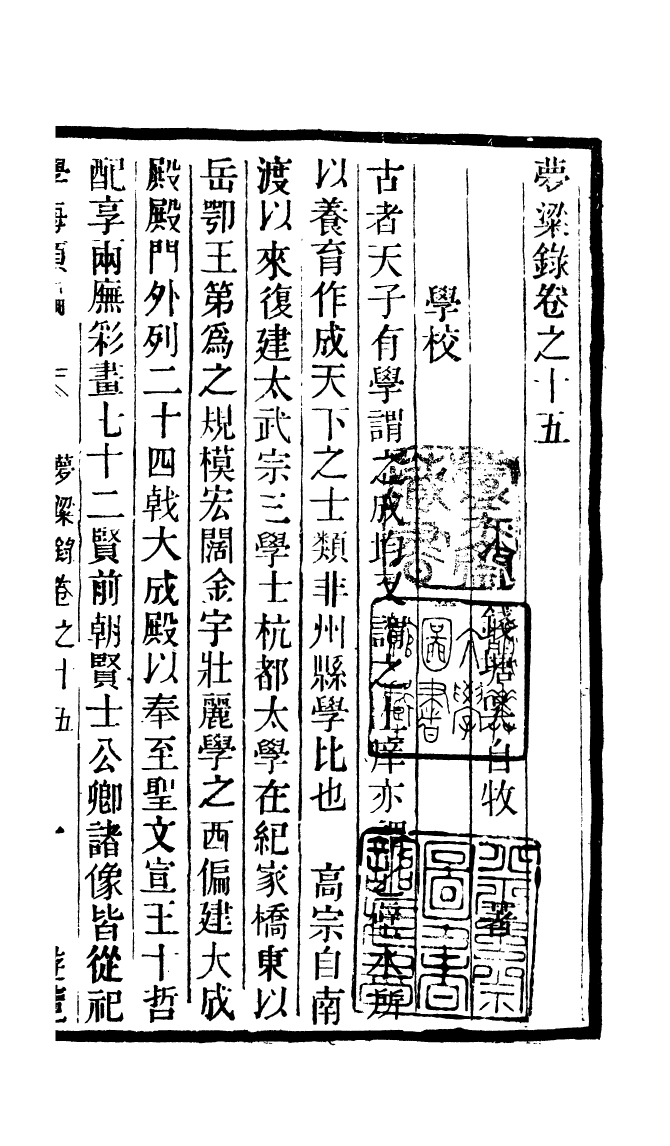 夢粱錄卷之十五
錢塘吳自牧 著
學校
古者天子有學謂之成均又謂之上庠亦謂之璧水所
以養育作成天下之士類非州縣學比也 高宗自南
渡以來復建太武宗三學士杭都太學在紀家橋東以
岳鄂王第為之規模宏闊金字壯麗學之西偏建大成
殿殿門外列二十四戟大成殿以奉至聖文宣王十哲
配享兩廡彩畫七十二賢前朝賢士公卿諸像皆從祀
學海類編 夢粱錄卷之十五 一 遊覽